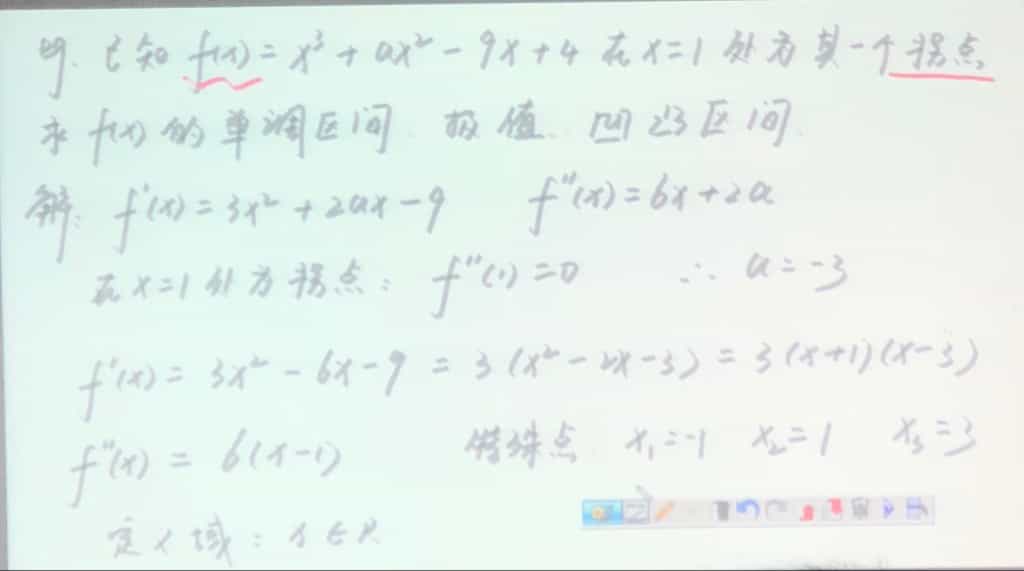 例. 已知 f(x) = x³ + ax² - 9x + 4 在 x=1 处为其一个拐点
求 f(x) 的单调区间. 极值. 凹凸区间.
解: f'(x) = 3x² + 2ax - 9 f''(x) = 6x + 2a
在 x=1 处为拐点: f''(1) = 0 ∴ a = -3
f'(x) = 3x² - 6x - 9 = 3(x² - 2x - 3) = 3(x+1)(x-3)
f''(x) = 6(x-1) 特殊点 x₁=-1 x₂=1 x₃=3
定义域: x∈R